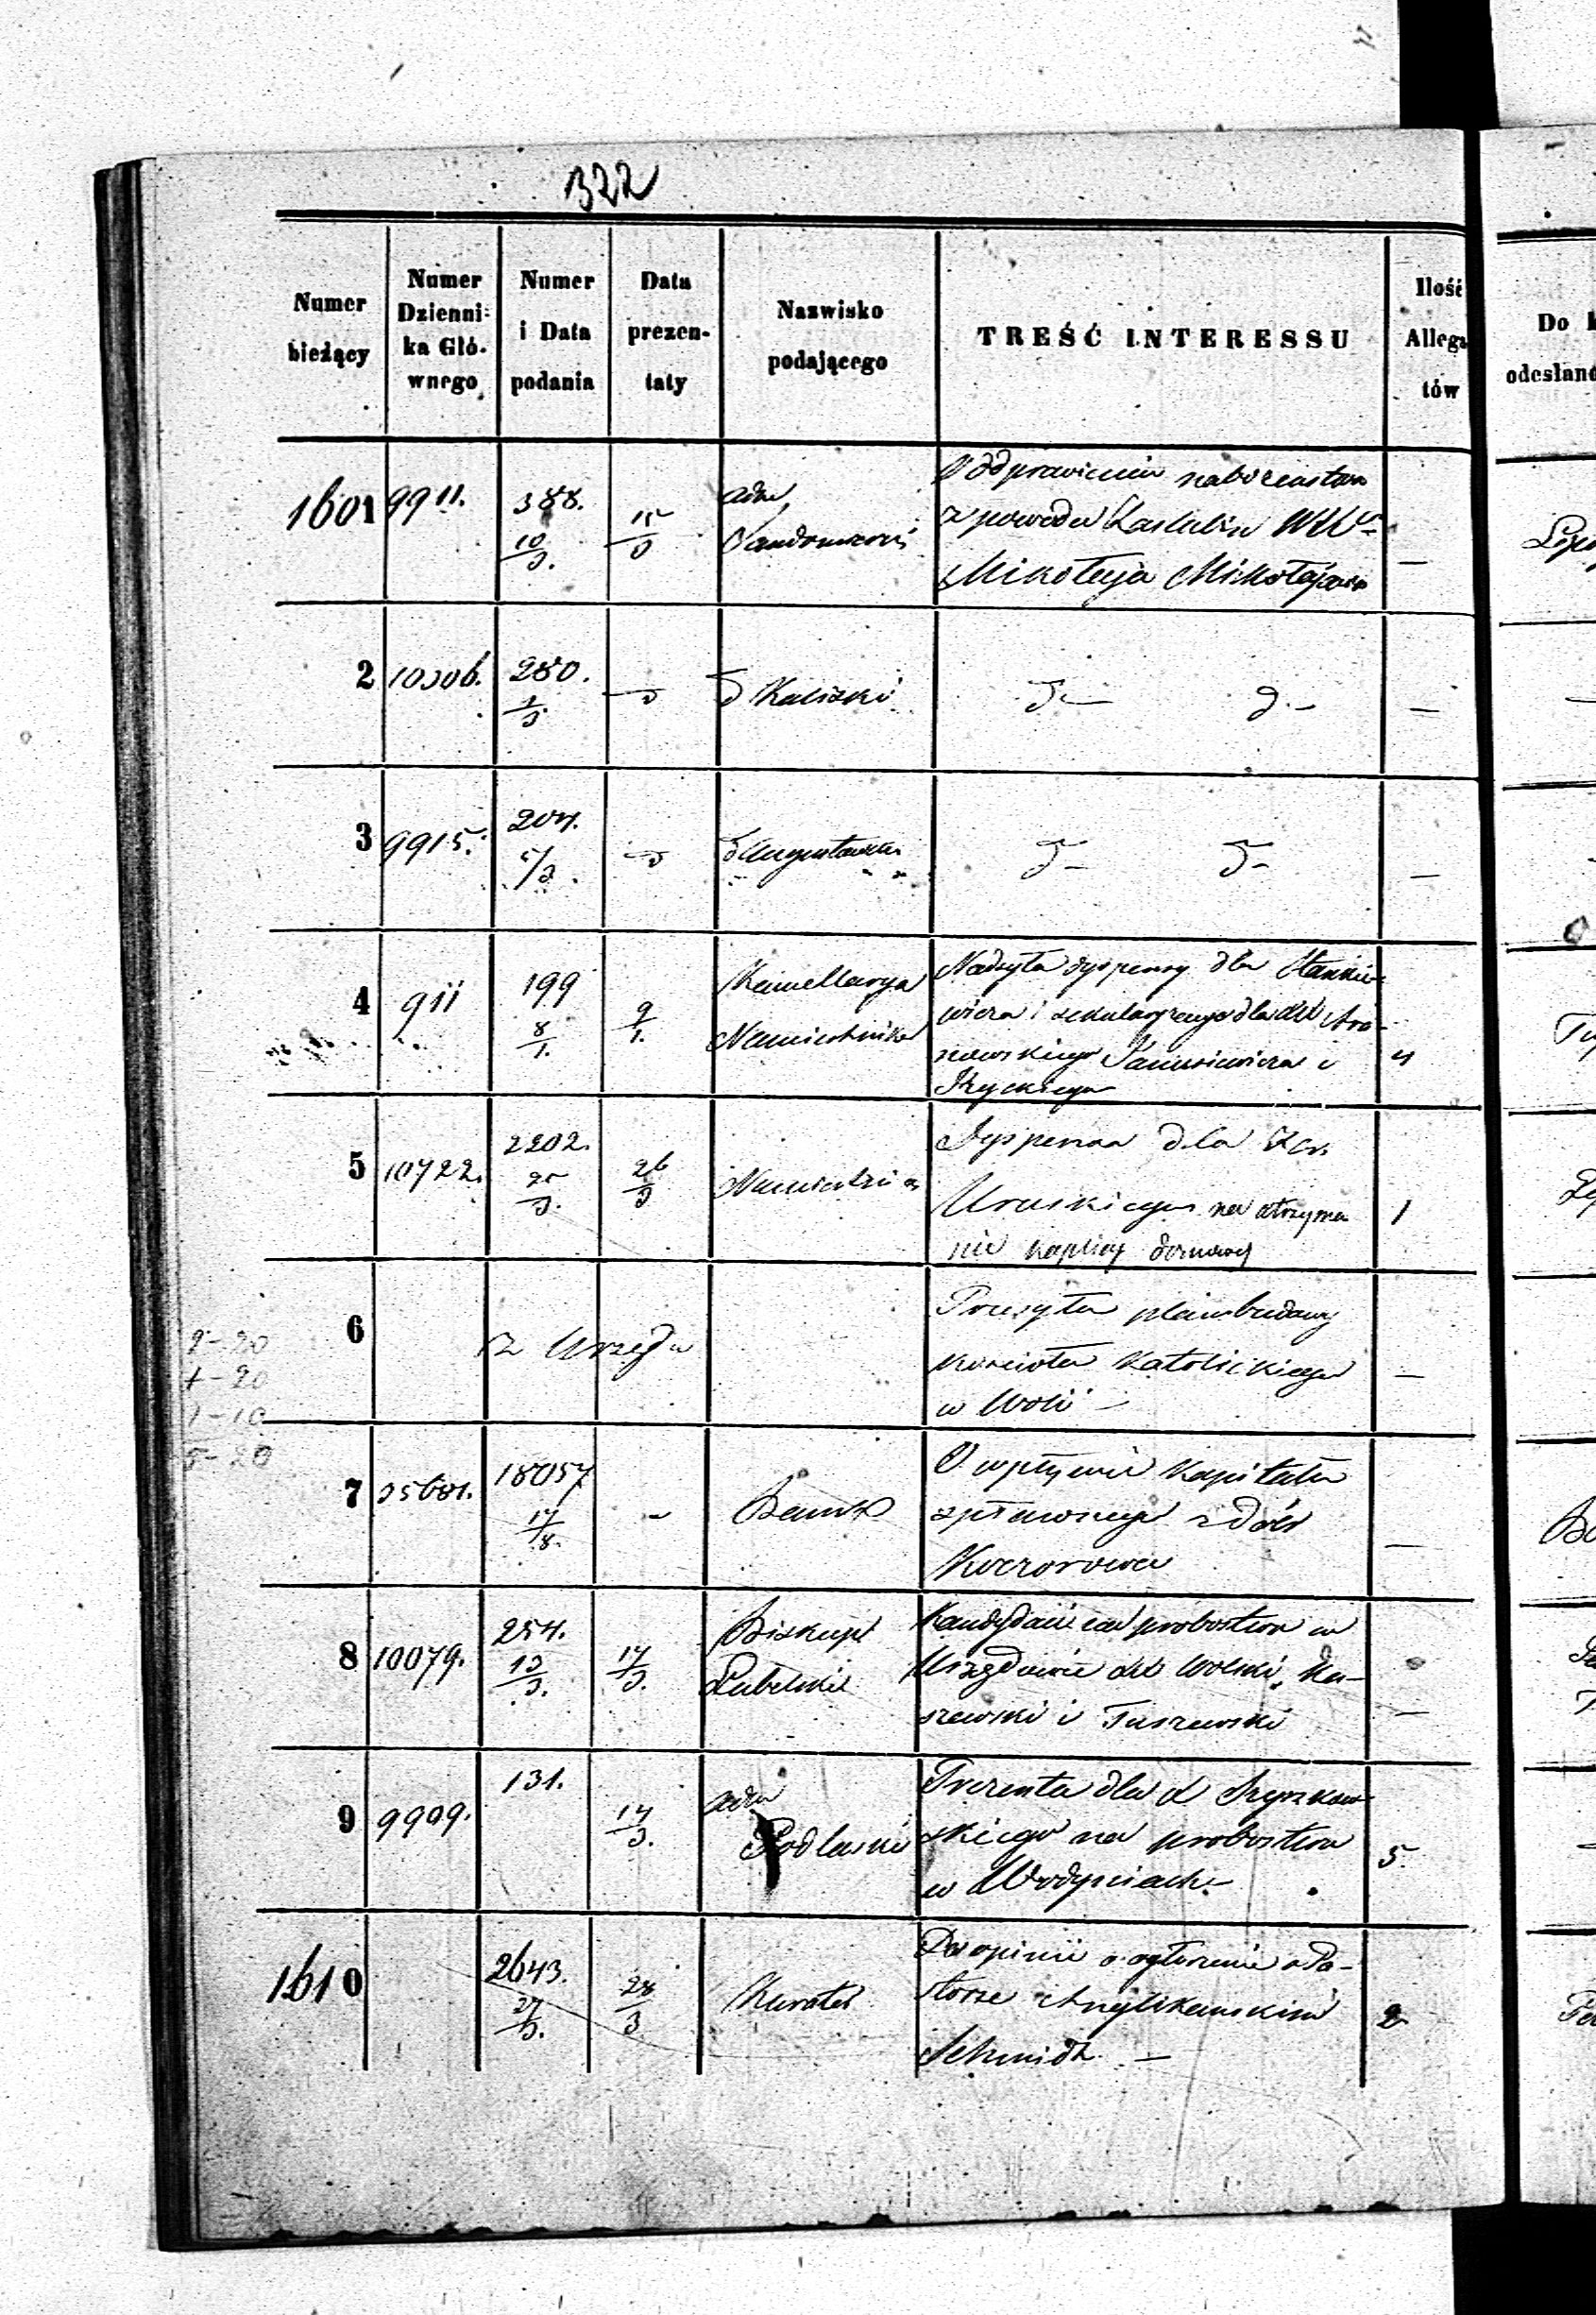 322
Numer bieżący
Numer Dzienni- ka Głó- wnego
Numer i Data podania
Data prezen- taty
Nazwisko podającego
TREŚĆ INTERESSU
Ilość Allega tów
Do k
odesłano
1601 9911. 388. 10/3. 15/3 adm
Sandomierski
O odprawieniu nabożeństwa
z powodu Zaślubin
Mikołaja Mikołajew
—
2 10306. 280. 1/3. d Kaliski d— d.— —
3 9915. 204. 5/3. d Augustowski d— d— —
4 911 199 8/1. 9/1. Kancellarya
Namiestnika
Nadsyła dyspensy dla Stankie-
wicza i dla XX
nowskiego Janusiewicza i
4
5 10722. 2202. 25/3. 26/3 Namiestnik
Dyspensa dla
Uruskiego na otrzyma
nie kaplicy domowej
1
6 z Urzędu
Przesyła plan budowy
kościoła Katolickiego
w Woli —
—
2-20
1-20
1-10
5-20
7 35681. 18057 17/8. - Bank
O wpływie Kapitału
spławnego z dóbr
Kaczorowa
—
8 10079. 254. 13/3. 17/3. Biskup
Lubelski
Kandydaci na probostwo w
Urzędowie XX Wolski, Ka-
szewski i Tuszewski
—
9 9909. 131. 17/3. adm
Podlaski
Prezenta dla X Szyszkow-
skiego na probostwo
w Wodyniach
5.
1610 2643. 27/3. 28/3 Kurator
Do opinii o ogłoszenie o Pa-
storze Anglikańskim
Schmidt. —
2